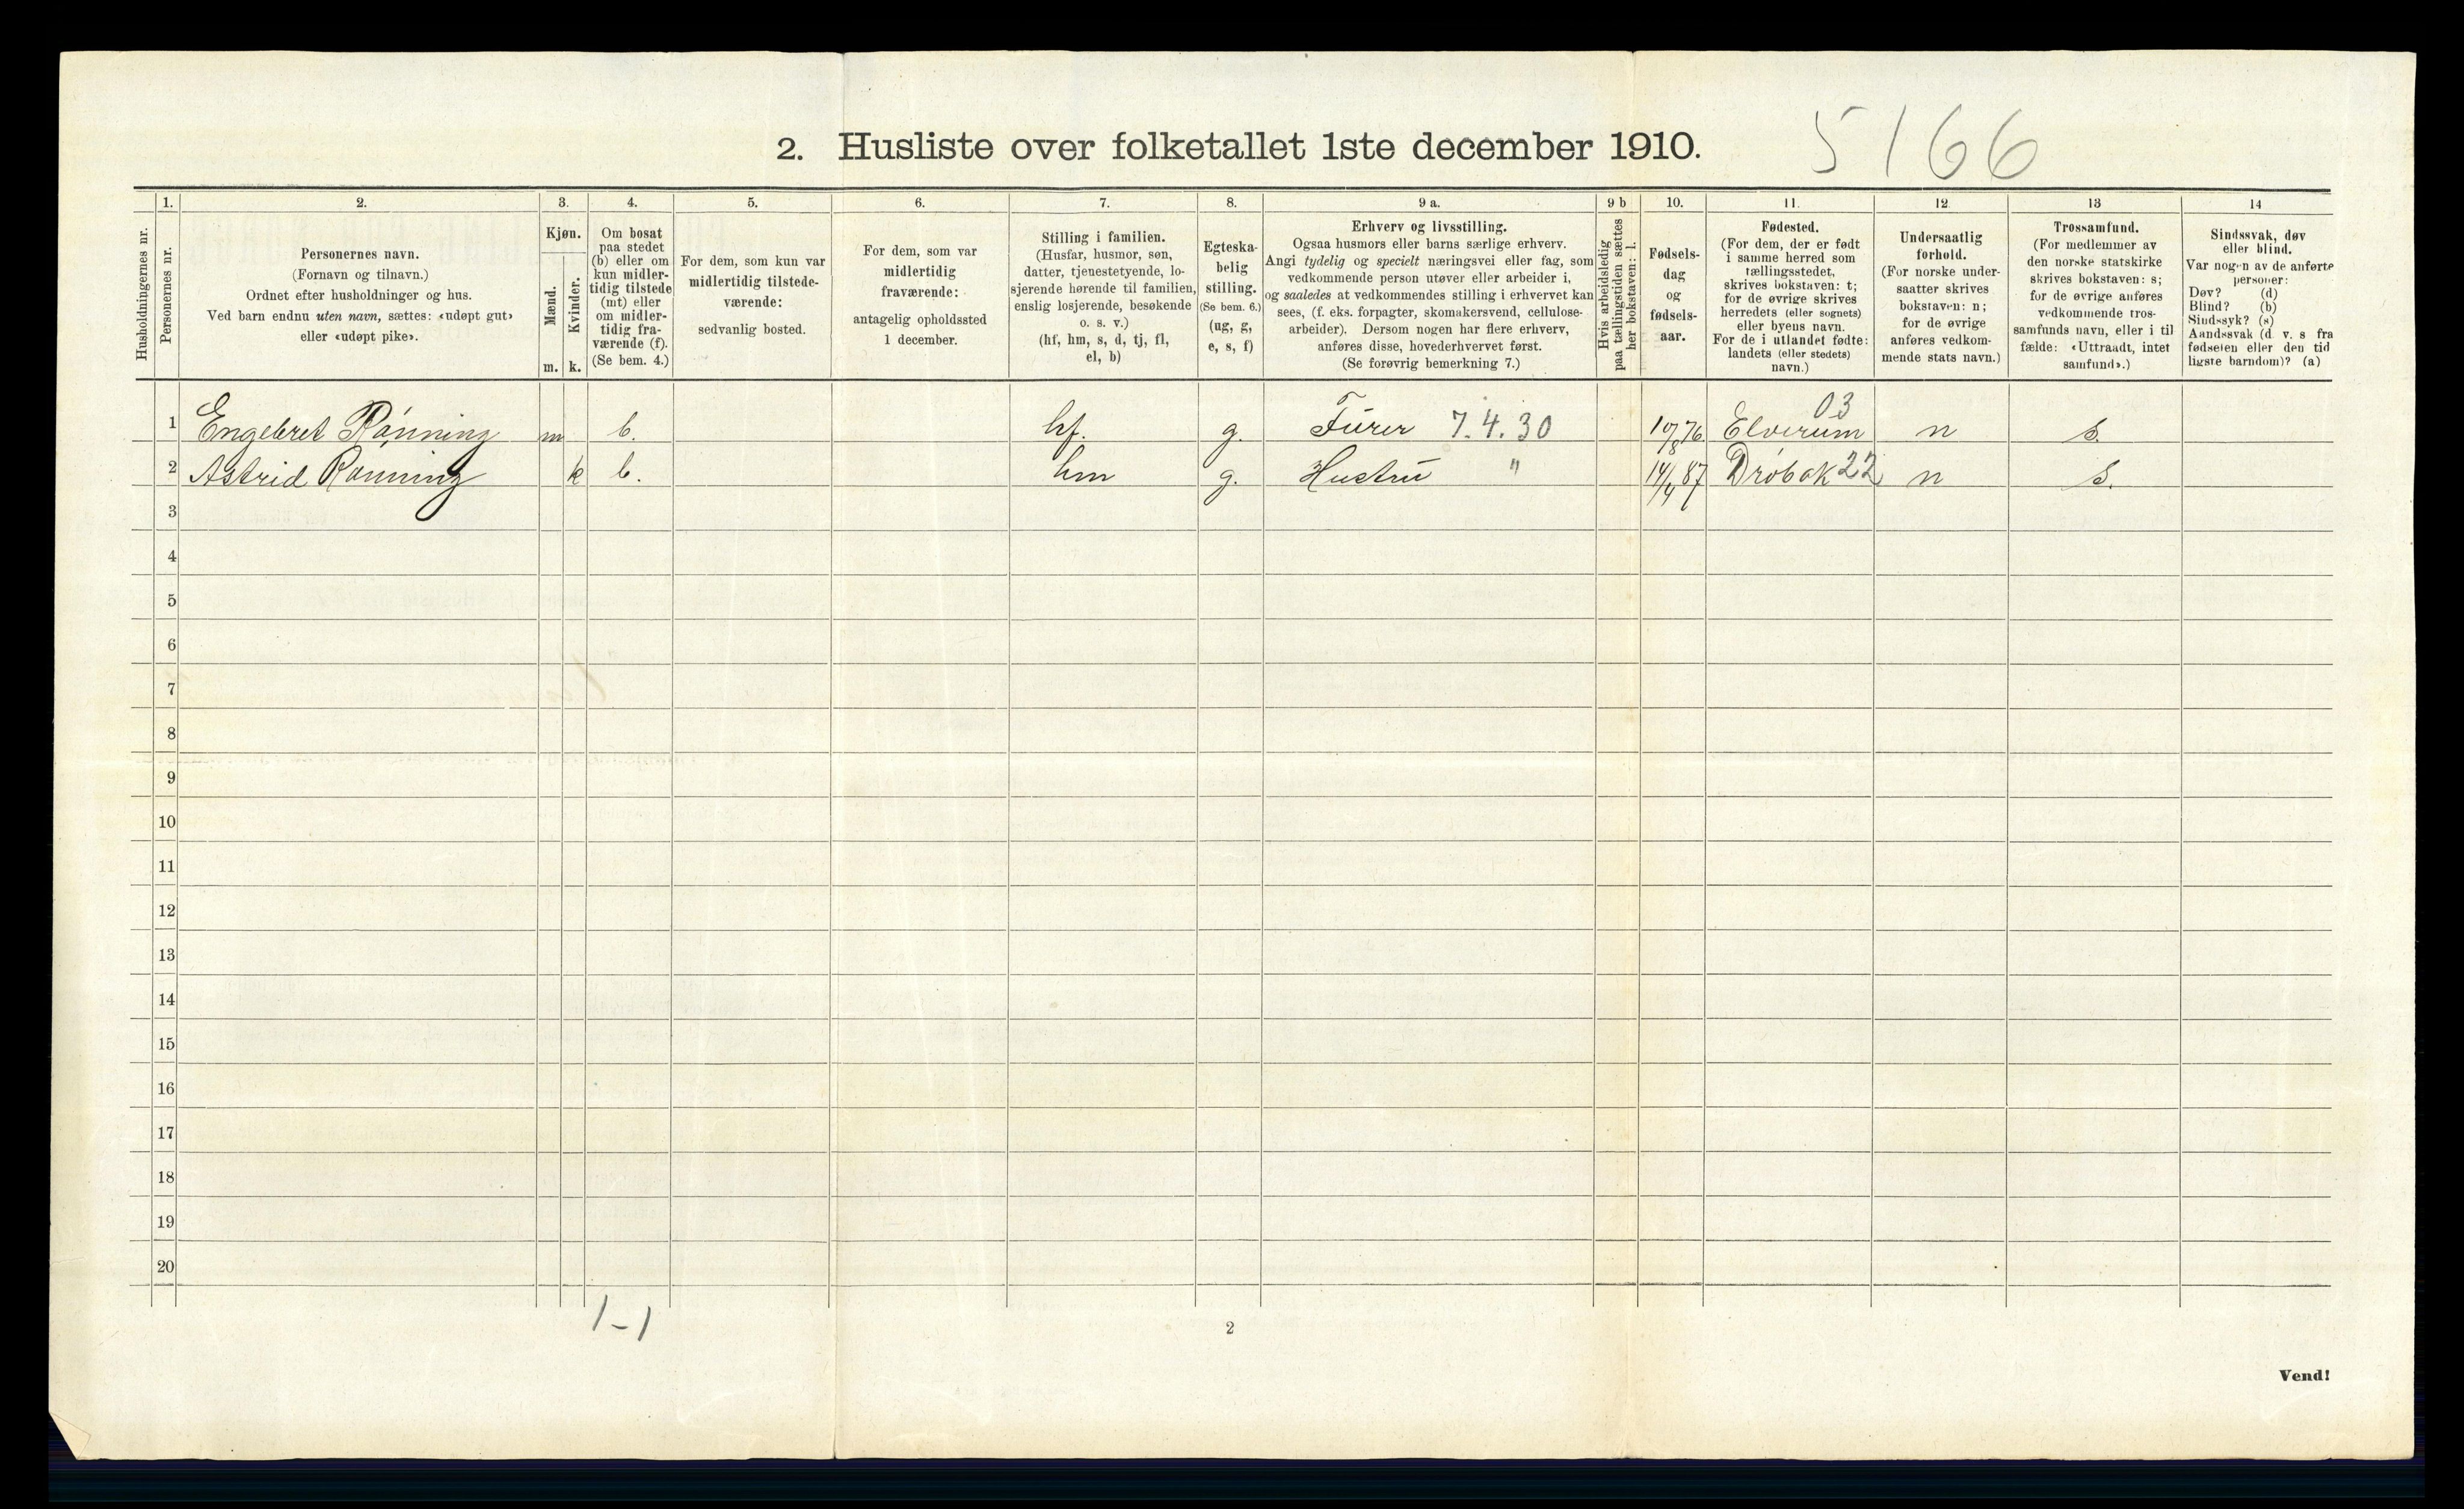 5166
2. Husliste over folketallet 1ste december 1910.
Husholdningernes nr.
1.
Personernes nr.
2.
Personernes navn.
(Fornavn og tilnavn.)
Ordnet efter husholdninger og hus.
Ved barn endnu uten navn, sættes: «udøpt gut»
eller «udøpt pike».
3.
Kjøn.
Mænd.
Kvinder.
m. k.
4.
Om bosat
paa stedet
(b) eller om
kun midler-
tidig tilstede
(mt) eller
om midler-
tidig fra-
værende (f).
(Se bem. 4.)
5.
For dem, som kun var
midlertidig tilstede-
værende:
sedvanlig bosted.
6.
For dem, som var
midlertidig
fraværende:
antagelig opholdssted
1 december.
7.
Stilling i familien.
(Husfar, husmor, søn,
datter, tjenestetyende, lo-
sjerende hørende til familien,
enslig losjerende, besøkende
o. s. v.)
(hf, hm, s, d, tj, fl,
el, b)
8.
Egteska-
belig
stilling.
(Se bem. 6.)
(ug, g,
e, s, f)
9 a.
Erhverv og livsstilling.
Ogsaa husmors eller barns særlige erhverv.
Angi tydelig og specielt næringsvei eller fag, som
vedkommende person utøver eller arbeider i,
og saaledes at vedkommendes stilling i erhvervet kan
sees, (f. eks. forpagter, skomakersvend, cellulose-
arbeider). Dersom nogen har flere erhverv,
anføres disse, hovederhvervet først.
(Se forøvrig bemerkning 7.)
9 b
Hvis arbeidsledig
paa tællingstiden sættes
her bokstaven: l.
10.
Fødsels-
dag
og
fødsels-
aar.
11.
Fødested.
(For dem, der er født
i samme herred som
tællingsstedet,
skrives bokstaven: t;
for de øvrige skrives
herredets (eller sognets)
eller byens navn.
For de i utlandet fødte:
landets (eller stedets)
navn.)
12
Undersaatlig
forhold.
(For norske under-
saatter skrives
bokstaven: n;
for de øvrige
anføres vedkom-
mende stats navn.)
13
Trossamfund.
(For medlemmer av
den norske statskirke
skrives bokstaven: s;
for de øvrige anføres
vedkommende tros-
samfunds navn, eller i til
fælde: «Uttraadt, intet
samfund».)
14
Sindssvak, døv
eller blind.
Var nogen av de anførte
personer:
Døv? (d)
Blind? (b)
Sindssyk? (s)
Aandssvak (d. v. s fra
fødselen eller den tid
ligste barndom)? (a)
03
1 Engebret Rønning m b. hf. g. Fürer 7.4.30 10/8 76 Elverum n s.
2 Astrid Rønning k b. hm g. Hustru " 14/4 87 Drøbak 22 n s.
3
4
5
6
7
8
9
10
11
12
13
14
15
16
17
18
19
20
1-1
2
Vend!